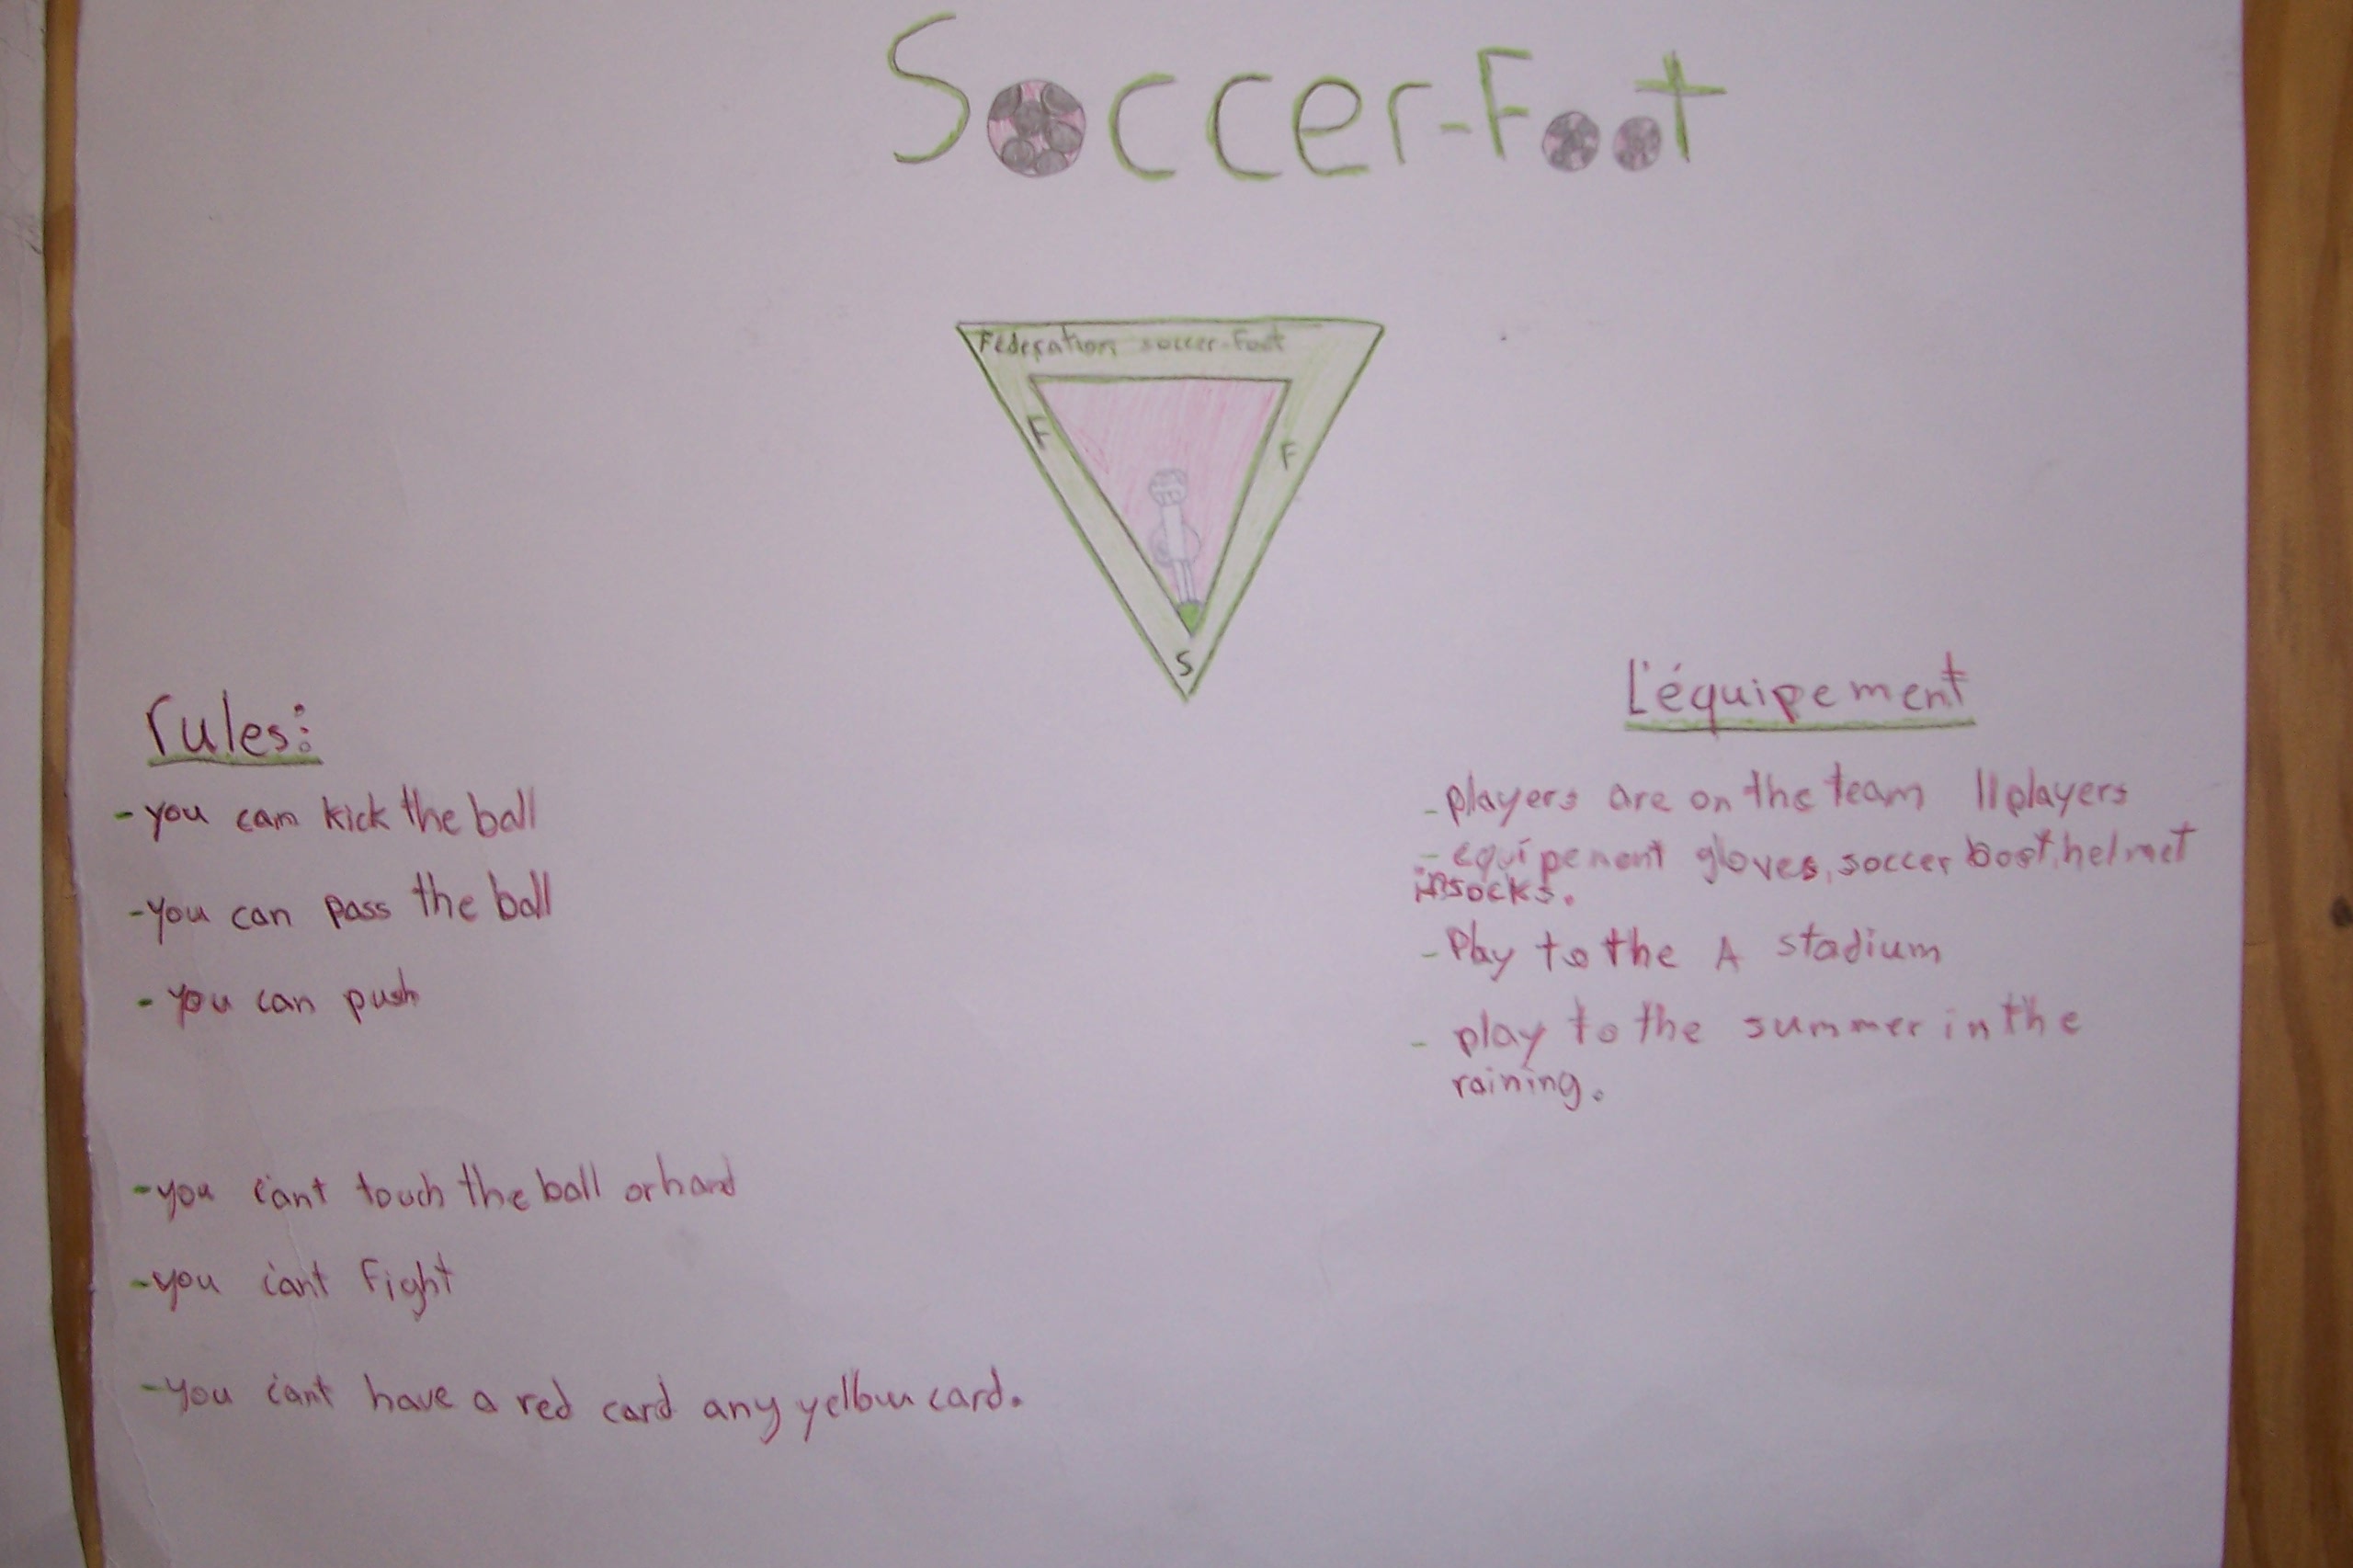 Soccer-Foot
Féderation soccer-Foot
F
F
S
rules:
- you can kick the ball
- you can pass the ball
- you can push
- you can't touch the ball or hand
- you can't Fight
- you can't have a red card any yellow card.
L'équipement
- players are on the team 11 players
- equipement gloves, soccer boot, helmet
socks.
- Play to the A stadium
- play to the summer in the
raining.